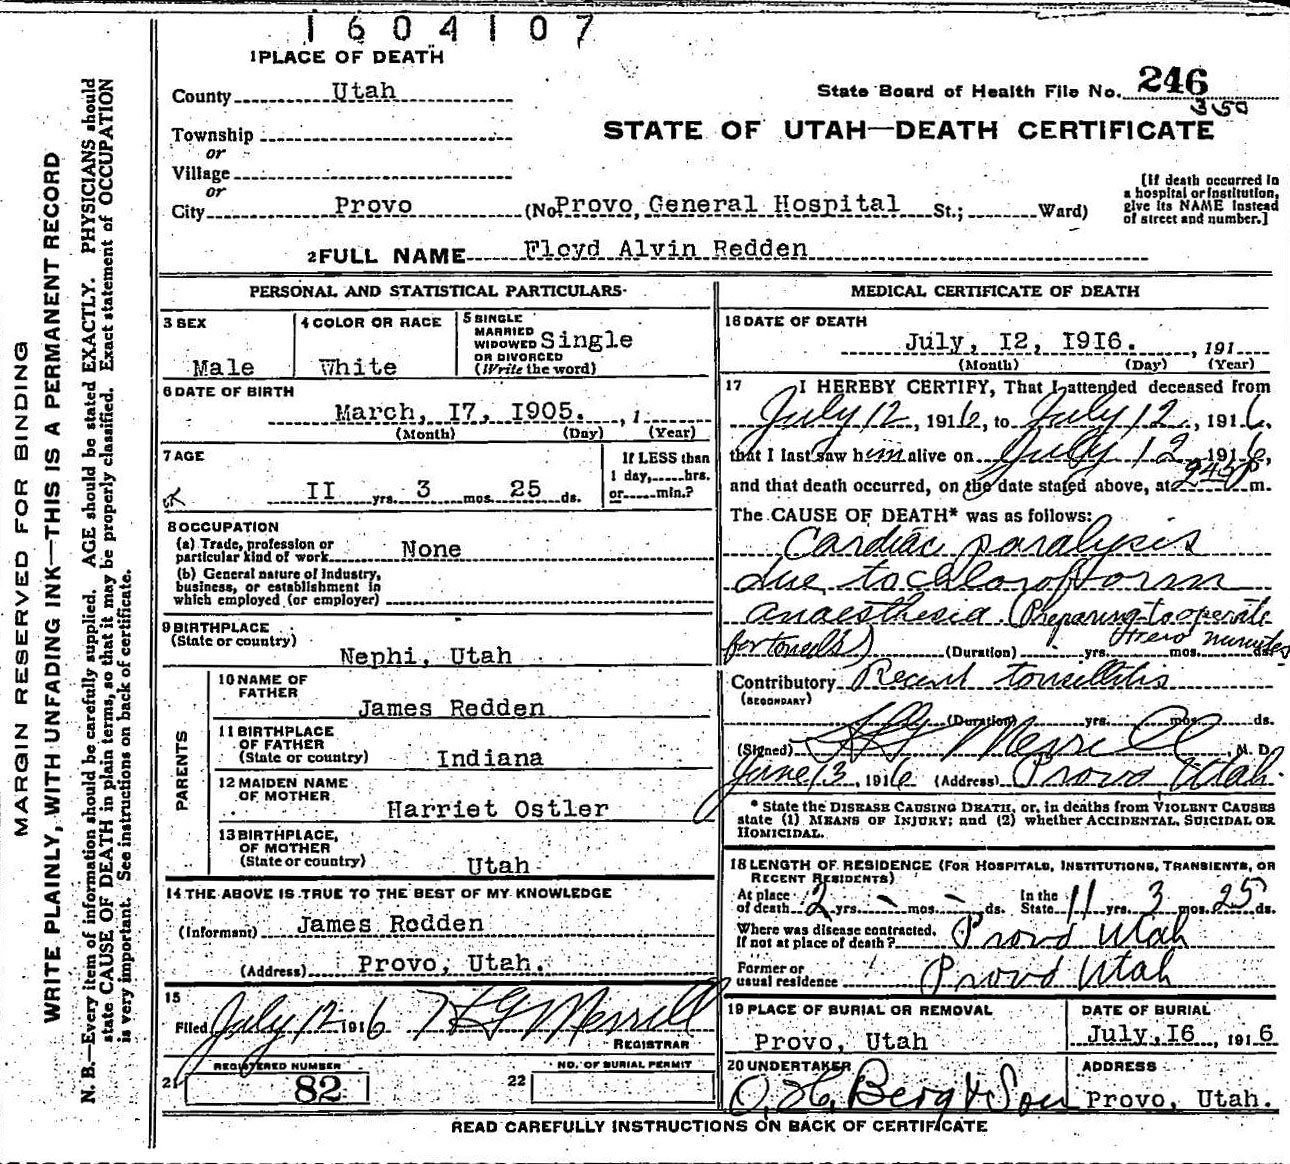 1604107
1 PLACE OF DEATH
County Utah
State Board of Health File No. 246
350
Township
or
STATE OF UTAH—DEATH CERTIFICATE
Village
or
City Provo (No Provo, General Hospital St.; Ward)
[If death occurred in
a hospital or institution,
give its NAME instead
of street and number.]
2 FULL NAME Floyd Alvin Redden
PERSONAL AND STATISTICAL PARTICULARS
3 SEX
Male
4 COLOR OR RACE
White
5 SINGLE
MARRIED
WIDOWED
OR DIVORCED
(Write the word)
Single
6 DATE OF BIRTH
March, 17, 1905. , 1
(Month) (Day) (Year)
7 AGE
11 yrs. 3 mos. 25 ds.
If LESS than
1 day, hrs.
or min.?
8 OCCUPATION
(a) Trade, profession or
particular kind of work None
(b) General nature of industry,
business, or establishment in
which employed (or employer)
9 BIRTHPLACE
(State or country)
Nephi, Utah
PARENTS
10 NAME OF
FATHER
James Redden
11 BIRTHPLACE
OF FATHER
(State or country) Indiana
12 MAIDEN NAME
OF MOTHER
Harriet Ostler
13 BIRTHPLACE,
OF MOTHER
(State or country)
Utah
14 THE ABOVE IS TRUE TO THE BEST OF MY KNOWLEDGE
(Informant) James Redden
(Address) Provo, Utah.
15
Filed July 12 1916 H G Merrill
REGISTRAR
REGISTERED NUMBER
21 82
NO. OF BURIAL PERMIT
22
MEDICAL CERTIFICATE OF DEATH
16 DATE OF DEATH
July, 12, 1916. , 191
(Month) (Day) (Year)
17 I HEREBY CERTIFY, That I attended deceased from
July 12, 1916, to July 12, 1916,
that I last saw him alive on July 12 1916,
and that death occurred, on the date stated above, at 245 P m.
The CAUSE OF DEATH* was as follows:
Cardiac paralysis
due to chloroform
anaesthesia. (Preparing to operate
for tonsils) (Duration) yrs. mos. ds. few minutes
Contributory Recent tonsillitis
(SECONDARY)
(Duration) yrs. mos. ds.
(Signed) H G Merrill, M. D.
June 13, 1916 (Address) Provo Utah.
* State the DISEASE CAUSING DEATH, or, in deaths from VIOLENT CAUSES
state (1) MEANS OF INJURY; and (2) whether ACCIDENTAL, SUICIDAL OR
HOMICIDAL.
18 LENGTH OF RESIDENCE (FOR HOSPITALS, INSTITUTIONS, TRANSIENTS, OR
RECENT RESIDENTS)
At place
of death 2 yrs. - mos. - ds.
In the
State 11 yrs. 3 mos. 25 ds.
Where was disease contracted,
if not at place of death? Provo Utah
Former or
usual residence Provo Utah
19 PLACE OF BURIAL OR REMOVAL
Provo, Utah
DATE OF BURIAL
July, 16, 1916
20 UNDERTAKER
O. H. Berg & Son
ADDRESS
Provo, Utah.
READ CAREFULLY INSTRUCTIONS ON BACK OF CERTIFICATE
MARGIN RESERVED FOR BINDING
WRITE PLAINLY, WITH UNFADING INK—THIS IS A PERMANENT RECORD
N. B.—Every item of information should be carefully supplied. AGE should be stated EXACTLY. PHYSICIANS should
state CAUSE OF DEATH in plain terms, so that it may be properly classified. Exact statement of OCCUPATION
is very important. See instructions on back of certificate.